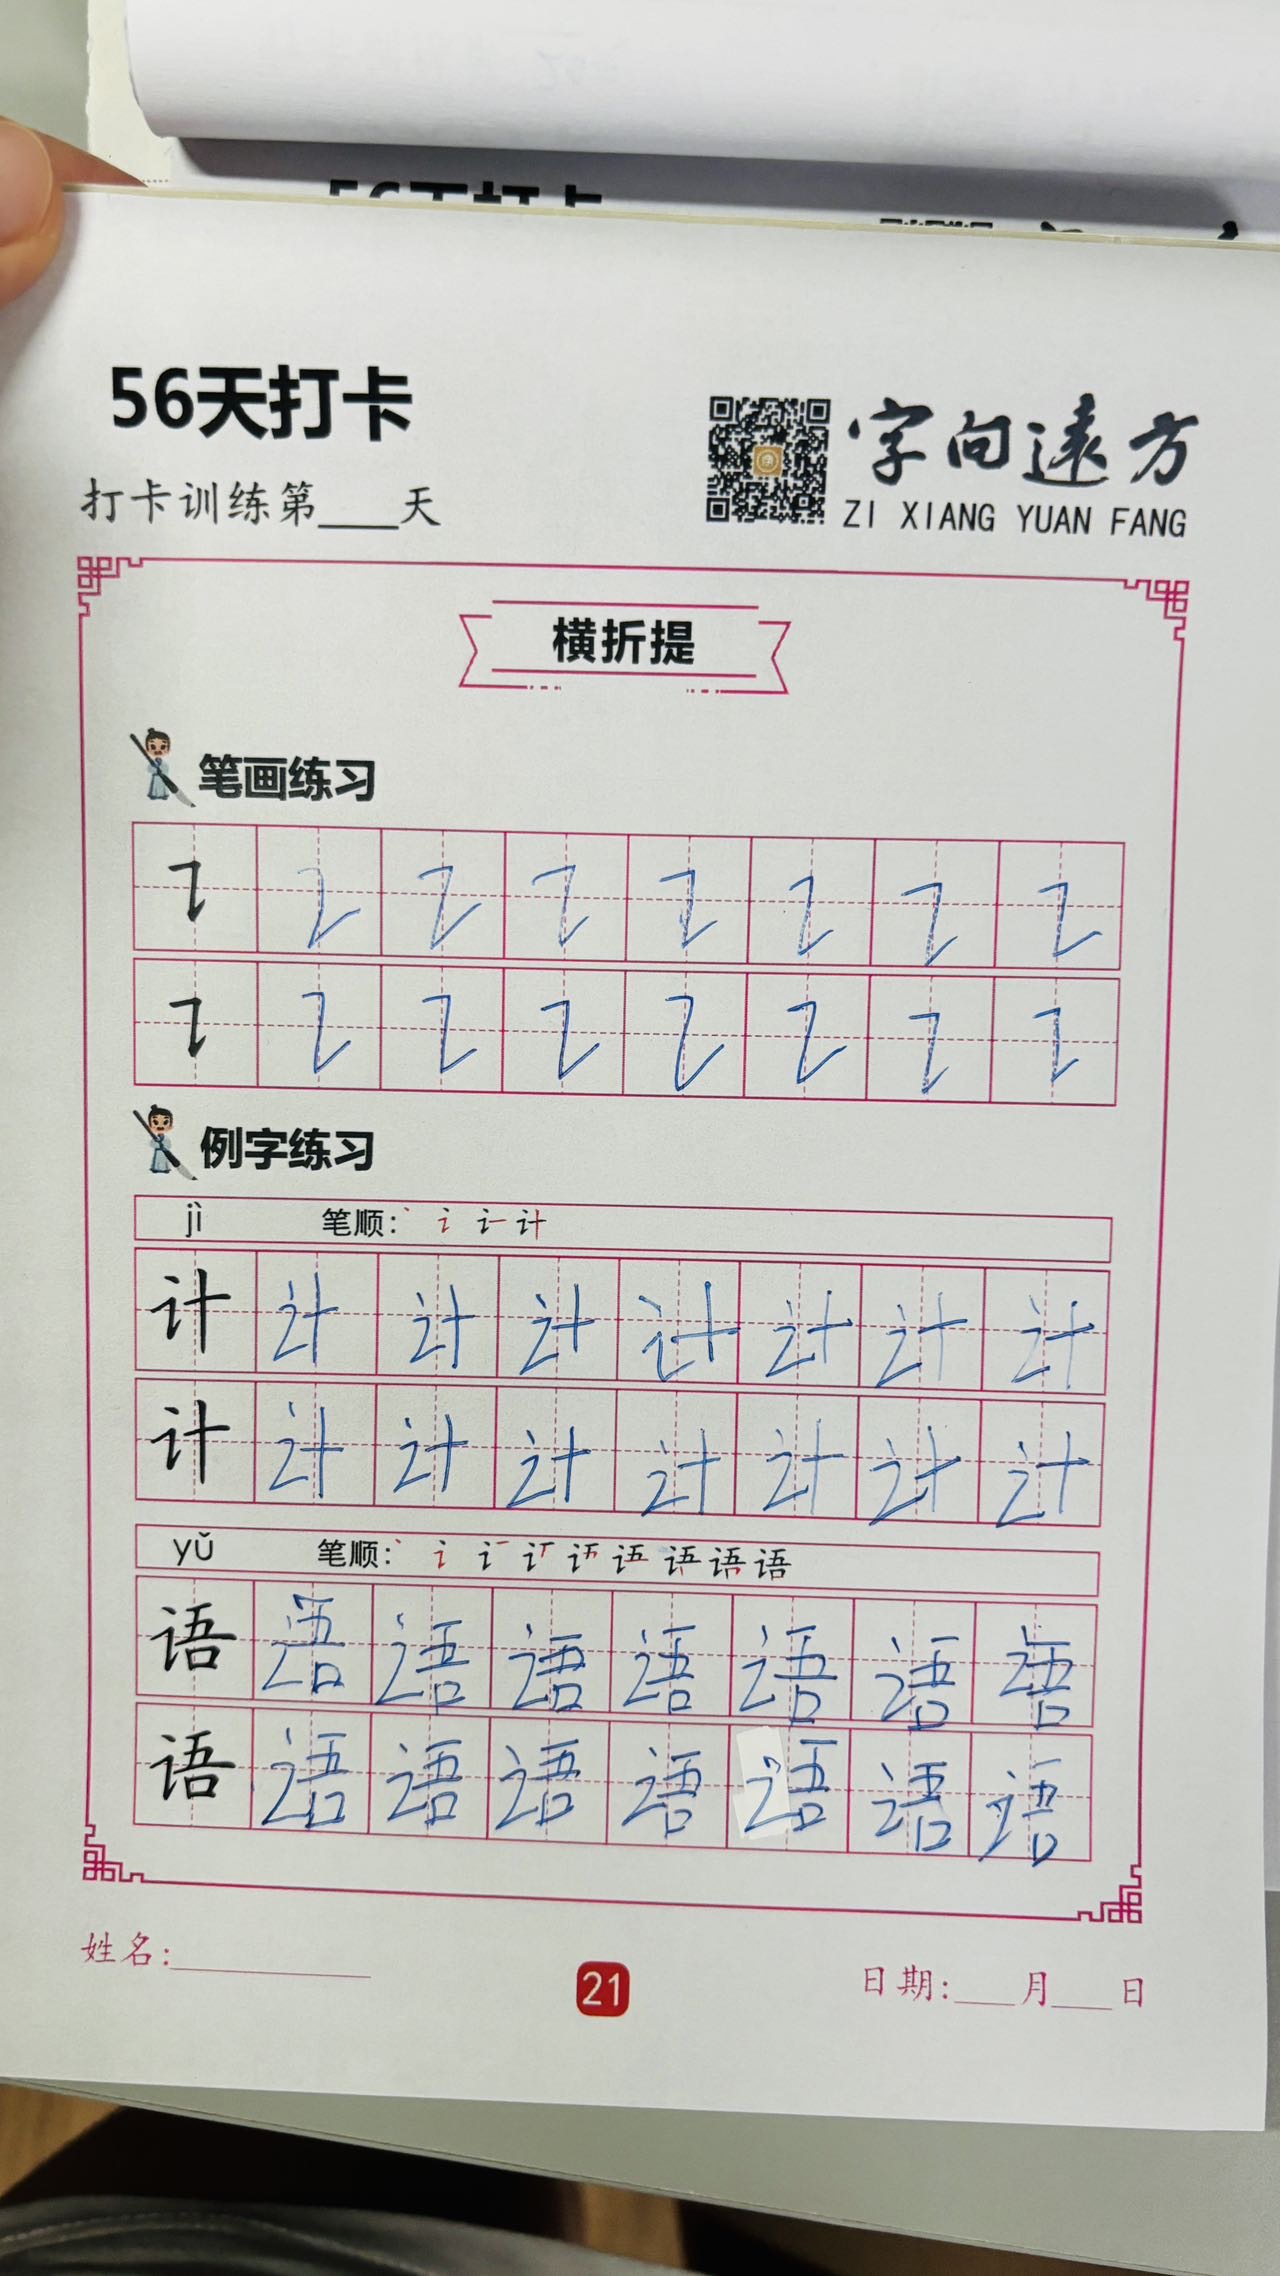 56天打卡
56天打卡
字向遠方
打卡训练第____天
ZI XIANG YUAN FANG
横折提
笔画练习
例字练习
jì 笔顺: 计
计 计 计 计 计 计 计 计
计 计 计 计 计 计 计 计
yǔ 笔顺: 语
语 语 语 语 语 语 语 语
语 语 语 语 语 语 语 语
姓名:__________
21
日期:___月___日